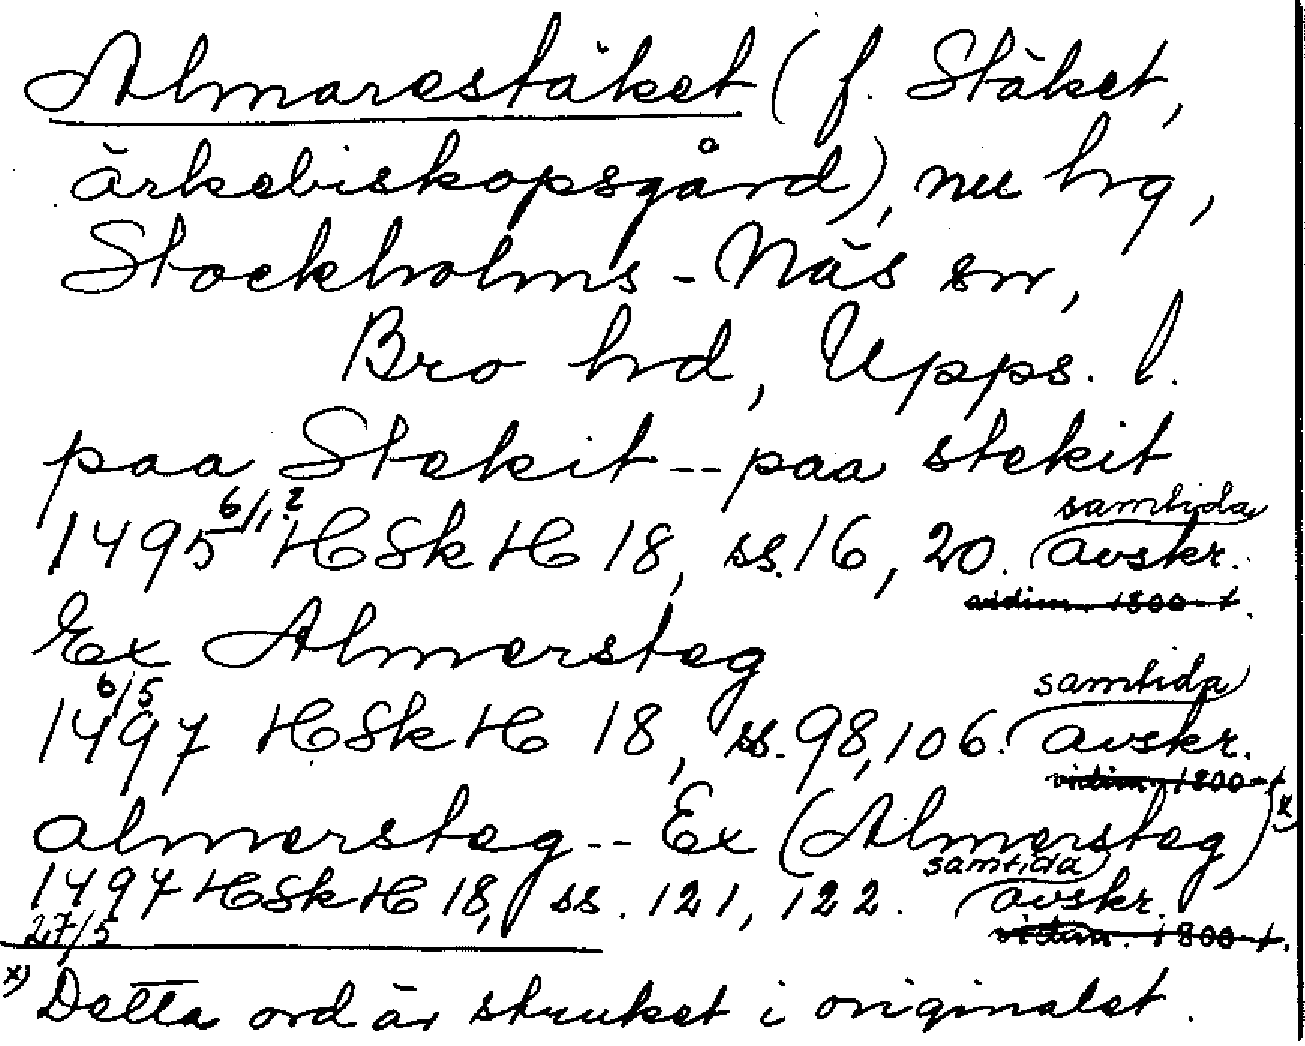 Almarestäket (f. Stäket,
ärkebiskopsgård), nu hrg,
Stockholms-Näs sn,
Bro hd, Upps. l.
paa Stekit -- paa stekit
1495 6/12 HSkH 18, ss. 16, 20. samtida avskr.
vidim. 1800-t.
Ex Almersteg
1497 6/5 HSkH 18, ss. 98, 106. samtida avskr.
vidim. 1800-t
almersteg -- Ex (Almersteg) x)
1497 27/5 HSkH 18, ss. 121, 122. samtida avskr.
vidim. 1800-t.
x) Detta ord är struket i originalet.